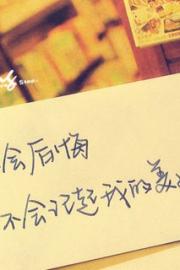 会后悔
不会记起我的美